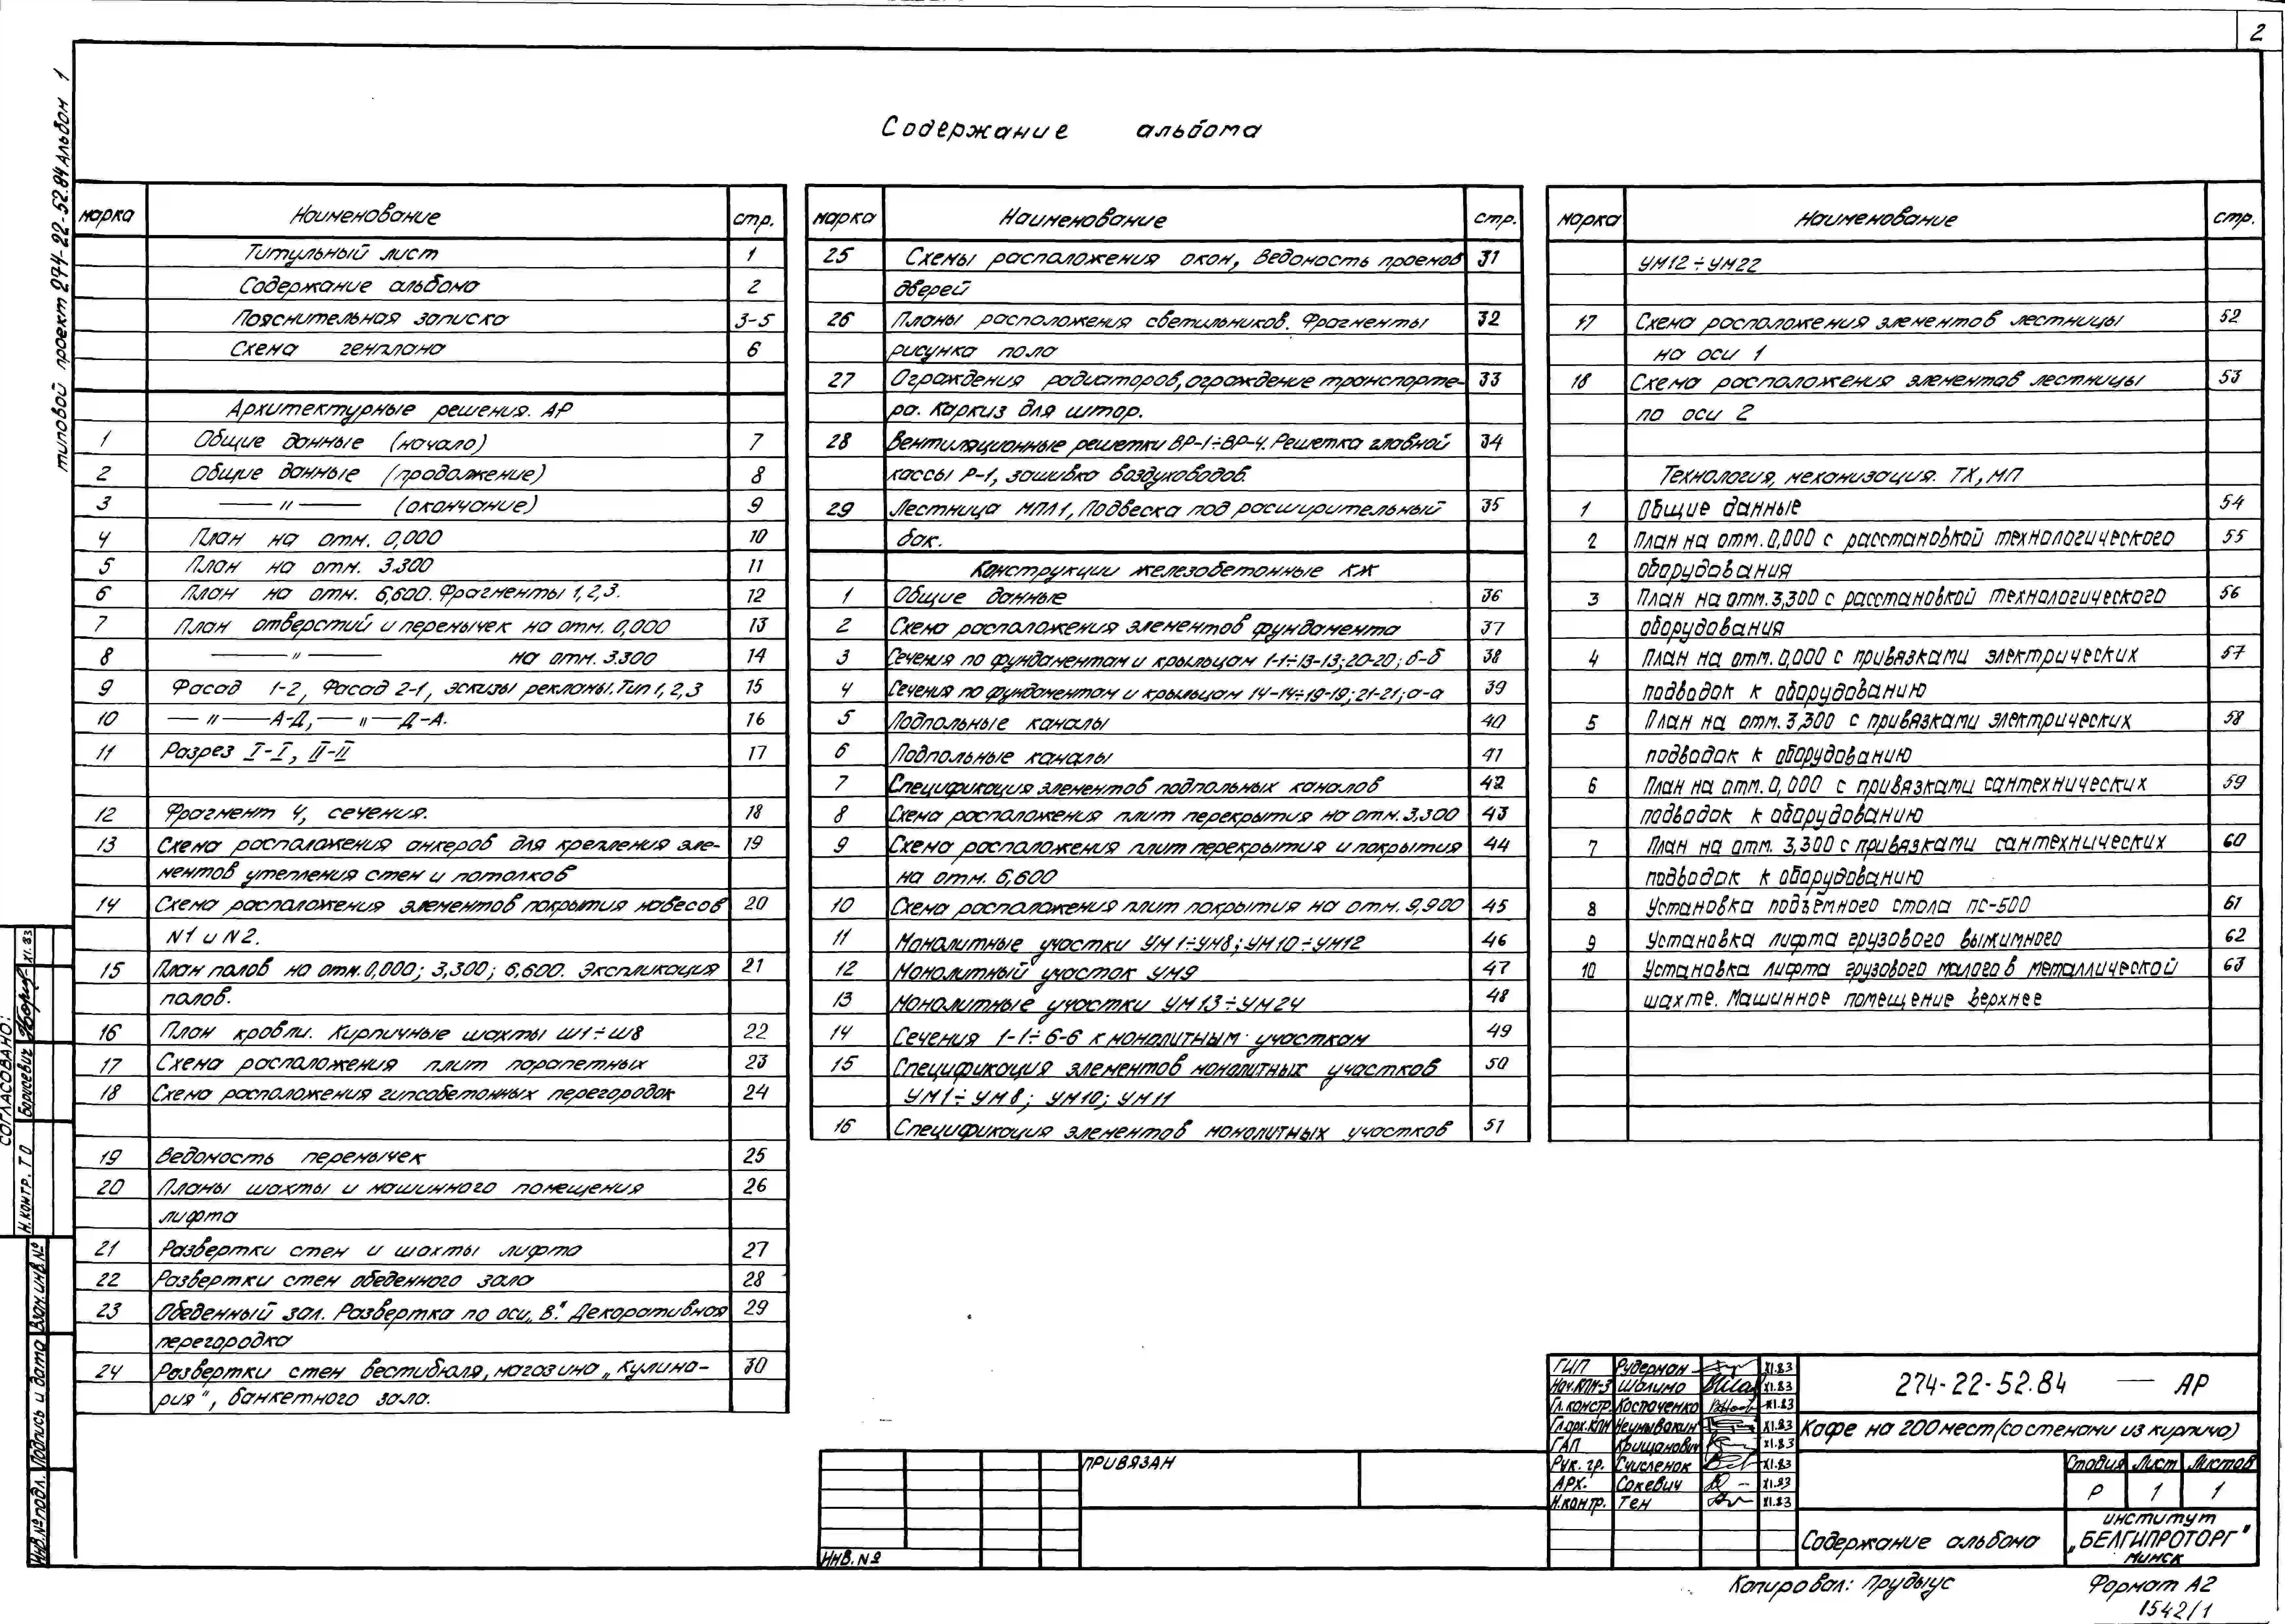 2
типовой проект 274-22-52.84 Альбом 1
Содержание альбома
марка Наименование стр.
Титульный лист 1
Содержание альбома 2
Пояснительная записка 3-5
Схема генплана 6
Архитектурные решения. АР
1 Общие данные (начало) 7
2 Общие данные (продолжение) 8
3 —— " —— (окончание) 9
4 План на отм. 0,000 10
5 План на отм. 3.300 11
6 План на отм. 6,600. Фрагменты 1,2,3. 12
7 План отверстий и перемычек на отм. 0,000 13
8 —— " —— на отм. 3.300 14
9 Фасад 1-2, Фасад 2-1, эскизы рекламы. Тип 1,2,3 15
10 — " — А-Д, — " — Д-А. 16
11 Разрез I-I, II-II 17
12 Фрагмент 4, сечения. 18
13 Схема расположения анкеров для крепления эле- 19
ментов утепления стен и потолков
14 Схема расположения элементов покрытия навесов 20
N1 и N2.
15 План полов на отм. 0,000; 3,300; 6,600. Экспликация 21
полов.
16 План кровли. Кирпичные шахты Ш1÷Ш8 22
17 Схема расположения плит парапетных 23
18 Схема расположения гипсобетонных перегородок 24
19 Ведомость перемычек 25
20 Планы шахты и машинного помещения 26
лифта
21 Развертки стен и шахты лифта 27
22 Развертки стен обеденного зала 28
23 Обеденный зал. Развертка по оси „В". Декоративная 29
перегородка
24 Развертки стен вестибюля, магазина „Кулина- 30
рия", банкетного зала.
марка Наименование стр.
25 Схемы расположения окон, Ведомость проемов 31
дверей
26 Планы расположения светильников. Фрагменты 32
рисунка пола
27 Ограждения радиаторов, ограждение транспорте- 33
ра. Каркиз для штор.
28 Вентиляционные решетки ВР-1÷ВР-4. Решетка главной 34
кассы Р-1, зашивка воздуховодов.
29 Лестница МПЛ1, Подвеска под расширительный 35
бак.
Конструкции железобетонные КЖ
1 Общие данные 36
2 Схема расположения элементов фундамента 37
3 Сечения по фундаментам и крыльцам 1-1÷13-13; 20-20; б-б 38
4 Сечения по фундаментам и крыльцам 14-14÷19-19; 21-21; а-а 39
5 Подпольные каналы 40
6 Подпольные каналы 41
7 Спецификация элементов подпольных каналов 42
8 Схема расположения плит перекрытия на отм. 3,300 43
9 Схема расположения плит перекрытия и покрытия 44
на отм. 6,600
10 Схема расположения плит покрытия на отм. 9,900 45
11 Монолитные участки УМ1÷УМ8; УМ10÷УМ12 46
12 Монолитный участок УМ9 47
13 Монолитные участки УМ13÷УМ24 48
14 Сечения 1-1÷6-6 к монолитным участкам 49
15 Спецификация элементов монолитных участков 50
УМ1÷УМ8; УМ10; УМ11
16 Спецификация элементов монолитных участков 51
марка Наименование стр.
УМ12÷УМ22
17 Схема расположения элементов лестницы 52
на оси 1
18 Схема расположения элементов лестницы 53
по оси 2
Технология, механизация. ТХ, МП
1 Общие данные 54
2 План на отм. 0,000 с расстановкой технологического 55
оборудования
3 План на отм. 3,300 с расстановкой технологического 56
оборудования
4 План на отм. 0,000 с привязками электрических 57
подводок к оборудованию
5 План на отм. 3,300 с привязками электрических 58
подводок к оборудованию
6 План на отм. 0,000 с привязками сантехнических 59
подводок к оборудованию
7 План на отм. 3,300 с привязками сантехнических 60
подводок к оборудованию
8 Установка подъемного стола ПС-500 61
9 Установка лифта грузового выжимного 62
10 Установка лифта грузового малого в металлической 63
шахте. Машинное помещение верхнее
СОГЛАСОВАНО:
Н.контр. ТО Борисевич XI.83
Инв.№подл. Подпись и дата Взам.инв.№
ПРИВЯЗАН
Инв. №
ГИП Рудерман XI.83
Нач.КПМ-3 Шалимо XI.83
Гл.констр. Костюченко XI.83
Гл.арх.КПМ Неумывакин XI.83
ГАП Крищанович XI.83
Рук. гр. Счисленок XI.83
АРХ. Сакевич XI.83
Н.контр. Тен XI.83
274-22-52.84 — АР
Кафе на 200 мест (со стенами из кирпича)
Стадия Лист Листов
Р 1 1
Содержание альбома
институт
„БЕЛГИПРОТОРГ"
Минск
Копировал: Прудыус
Формат А2
1542/1